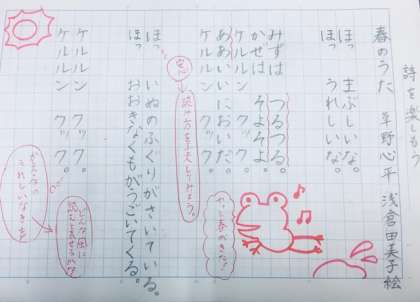 詩を楽しもう
春のうた 草野心平 浅倉田美子 絵
ほっ まぶしいな。
ほっ うれしいな。
みずは つるつる。
かぜは そよそよ。
ケルルン クック。
ああいいにおいだ。
ケルルン クック。
ほっ いぬのふぐりがさいている。
ほっ おおきなくもがうごいてくる。
ケルルン クック。
ケルルン クック。
やっと春がきた!
読み方を工夫してみよう。
かえるの
うれしいなき声
どんな風に